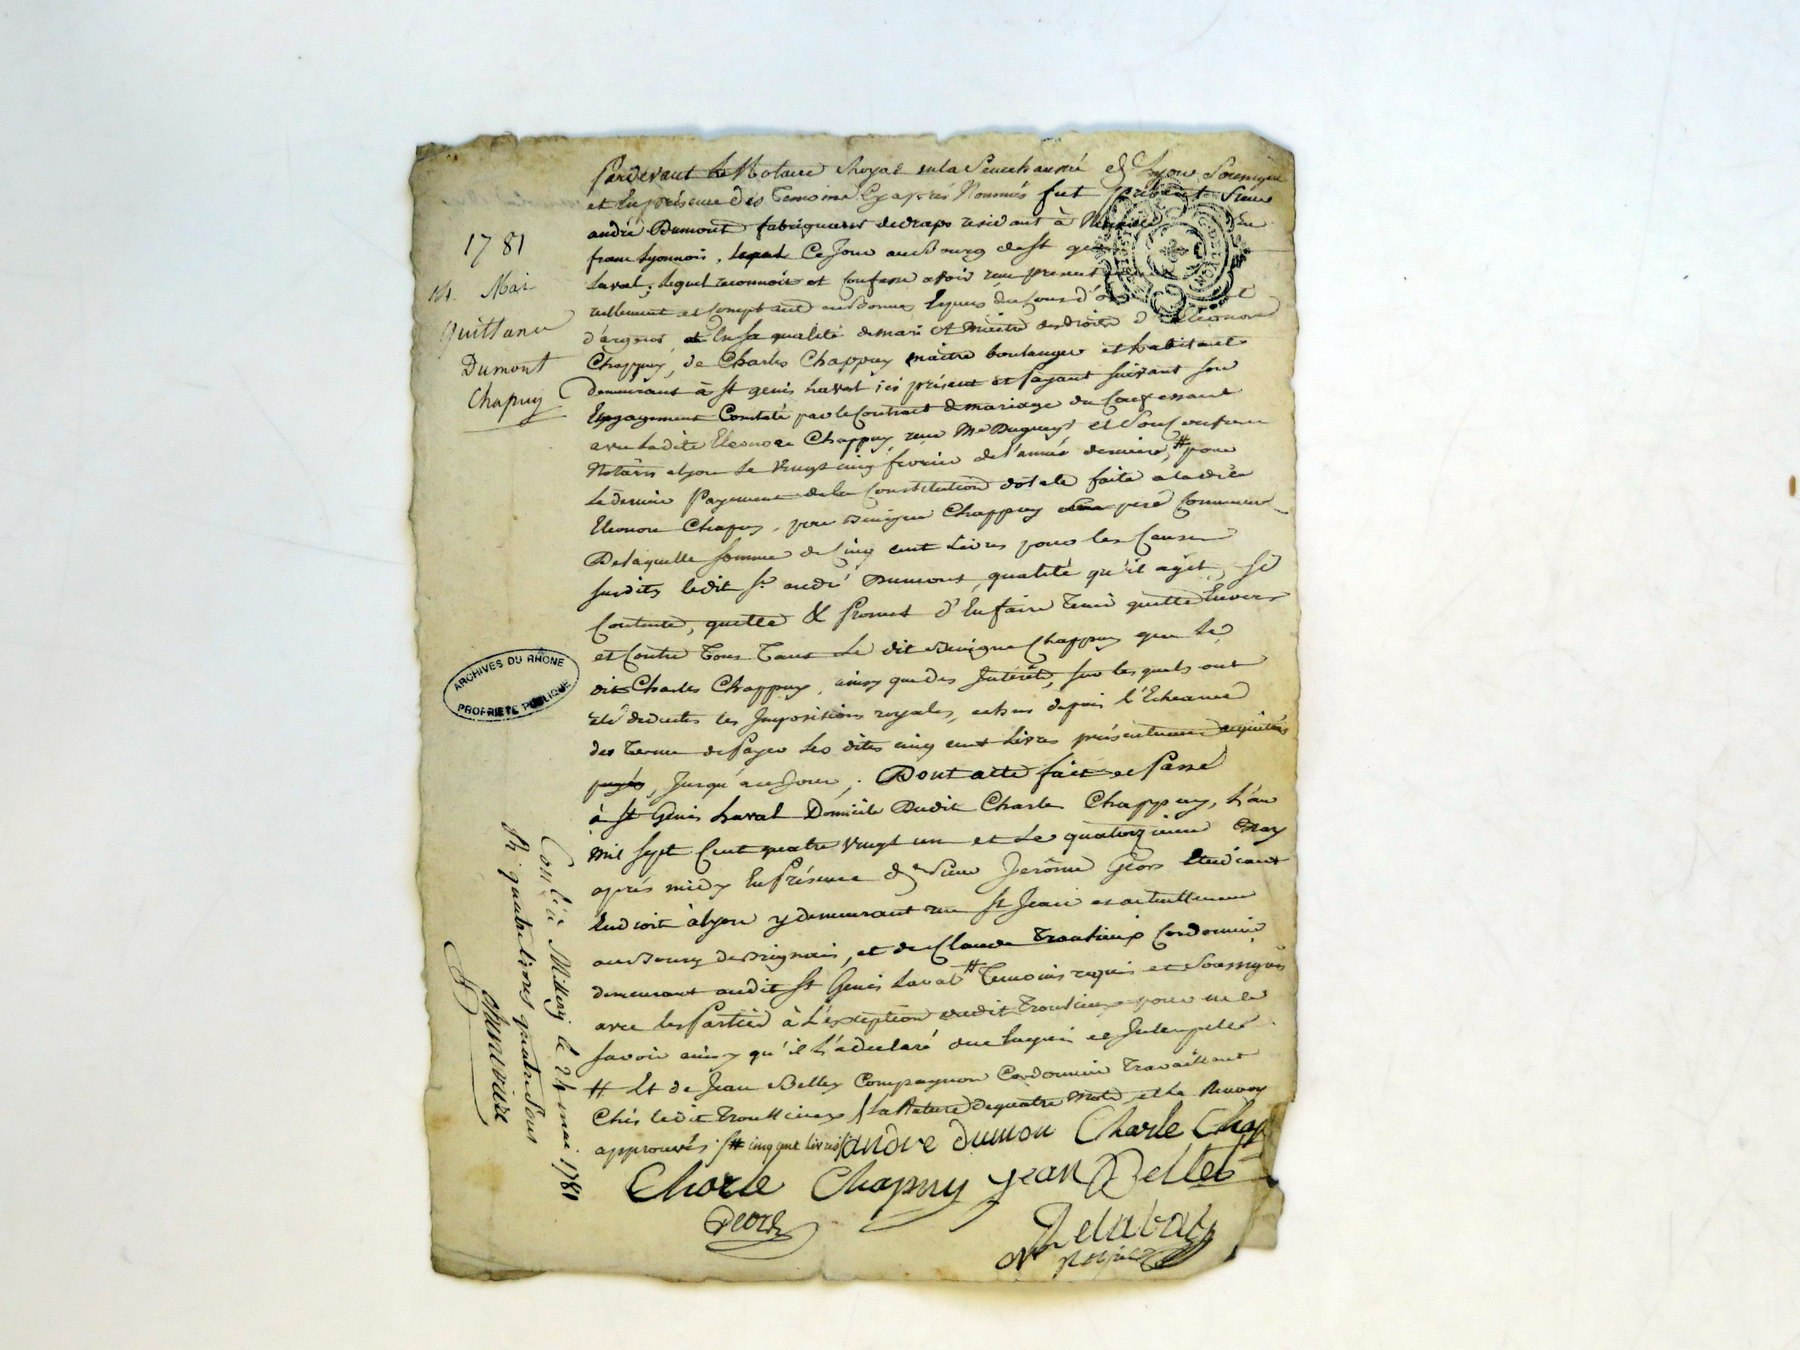 1781
14 Mai
Quittance
Dumont
Chapuy
Pardevant le Notaire Royal en la Senechaussée de Lyon Soussigné
et En présence des temoins Cy après Nommés fut present Sieur
andré Dumont fabriquant de draps residant à en
franc Lyonnois, ce Jour au Bourg de St genis
Laval, lequel reconnoit et Confesse avoir reçu presentement
reellement et Comptant en bonnes Espèces du Cours d'or et
d'argent En sa qualité de mari et maitre des droits d'Eleonore
Chappuy, de Charles Chappuy maitre boulanger et habitant
demeurant à St genis Laval ici présent et payant suivant son
Engagement Constaté par le Contrat de mariage du Confessant
avec la dite Eleonore Chappuy reçu Me Duguey et Son Confrere
Notaires a lyon Le Vingt cinq fevrier de l'année derniere, # pour
Le dernier Payement de la Constitution dotale faite a la dite
Eleonore Chapuy, par Benigne Chappuy père Commun
De laquelle somme de Cinq cent Livres pour les Causes
susdites ledit Sr. andré Dumont, qualité qu'il agit, se
Contente, quitte & Promet d'En faire tenir quitte Envers
et Contre tous tant Le dit Benigne Chappuy que Le
dit Charles Chappuy, ainsy que des Intérêts, sur lesquels ont
été deduites les Impositions royales, echus depuis l'Echeance
des terme de Payer Les dites cinq cent Livres présentement acquittés
Jusqu'à ce Jour. Dont acte fait et Passé
à St Genis Laval Domicile Dudit Charles Chappuy, L'an
Mil Sept Cent quatre Vingt un et Le quatorzieme May
après midy En Présence de Sieur Jerôme Geors Etudiant
En droit à lyon y demeurant rue St Jean et actuellement
au Bourg de Brignais, et de Claude Troutieux Cordonnier
demeurant audit St Genis Laval # Temoins requis et Soussignés
avec les Parties à L'éxception dudit Troutieux pour ne le
savoir ainsy qu'il L'a declaré de ce Enquis et Interpellé
# Et de Jean Bellet Compagnon Cordonnier Travaillant
Chés ledit Troutieux / La Rature de quatre Mots, et Le Renvoy
approuvés /# cinq cent livres/ andre dumon Charle Chap
Charle Chapuy jean Bellet
Geors
Delabat
No royal
ARCHIVES DU RHÔNE
PROPRIÉTÉ PUBLIQUE
Con.lé à Millery le 24 mai 1781
R. quatre livres quatre sous